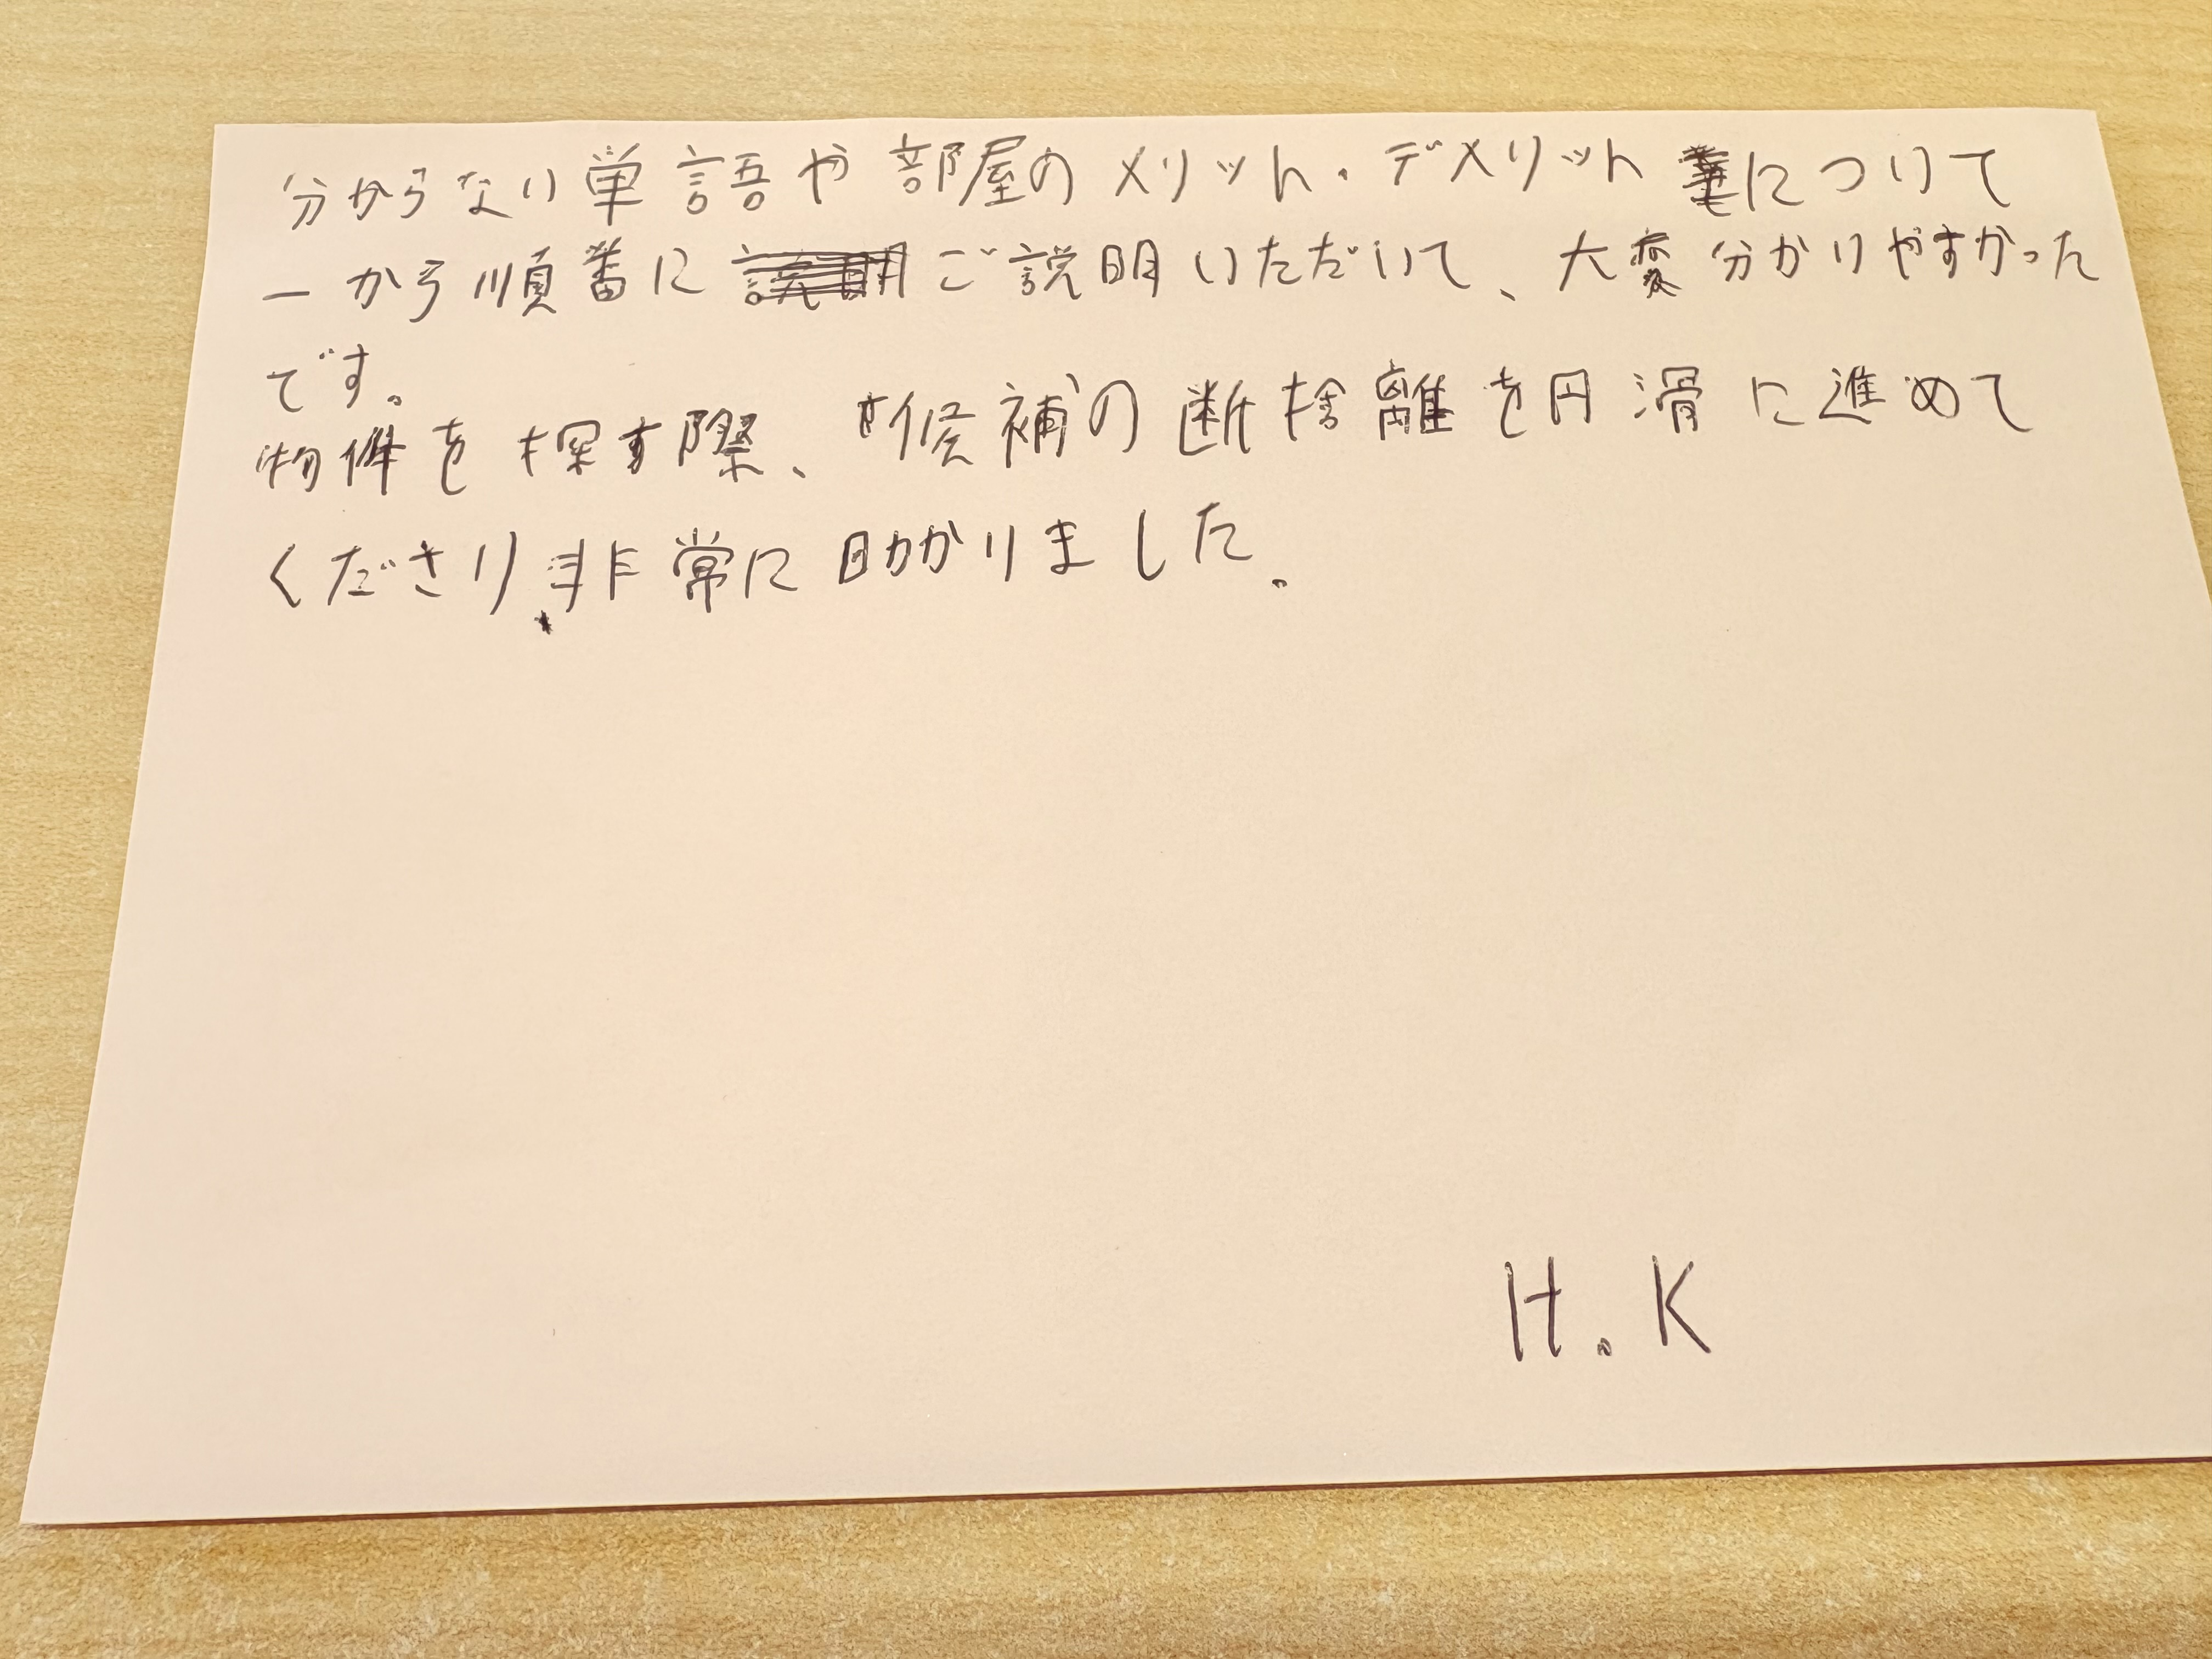 分からない単語や部屋のメリット・デメリットについて
一から順番にご説明いただいて、大変分かりやすかった
です。
物件を探す際、候補の断捨離を円滑に進めて
くださり、非常に助かりました。
H.K